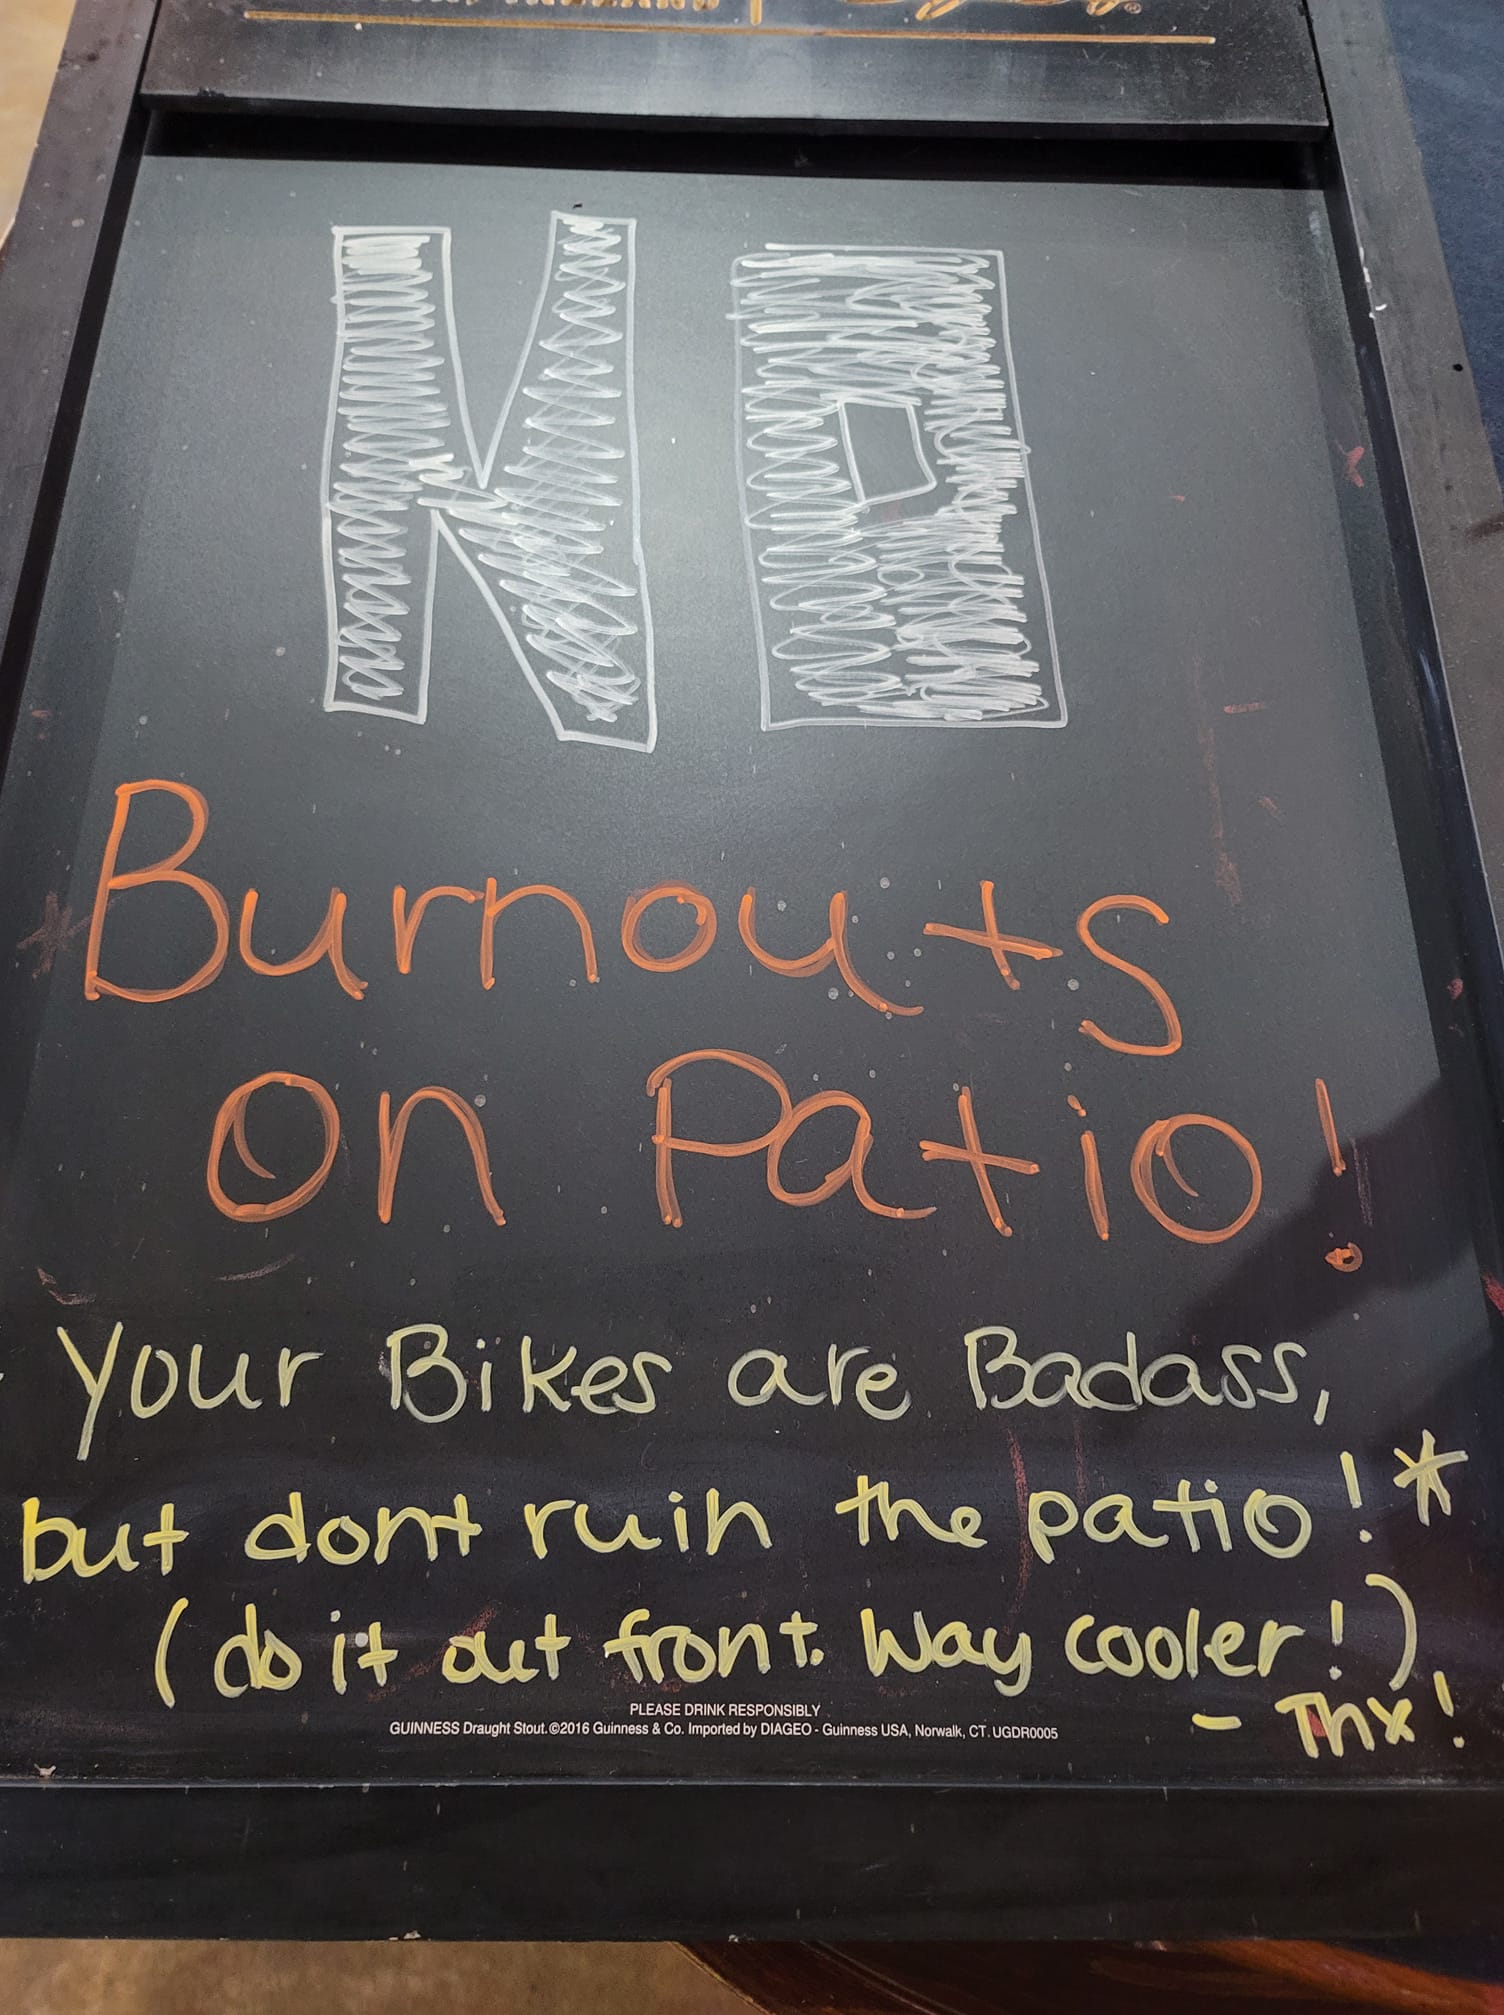 NO
Burnouts
on Patio!
Your Bikes are Badass,
but dont ruin the patio!*
(do it out front. Way cooler!)
- Thx!
PLEASE DRINK RESPONSIBLY
GUINNESS Draught Stout. ©2016 Guinness & Co. Imported by DIAGEO - Guinness USA, Norwalk, CT. UGDR0005